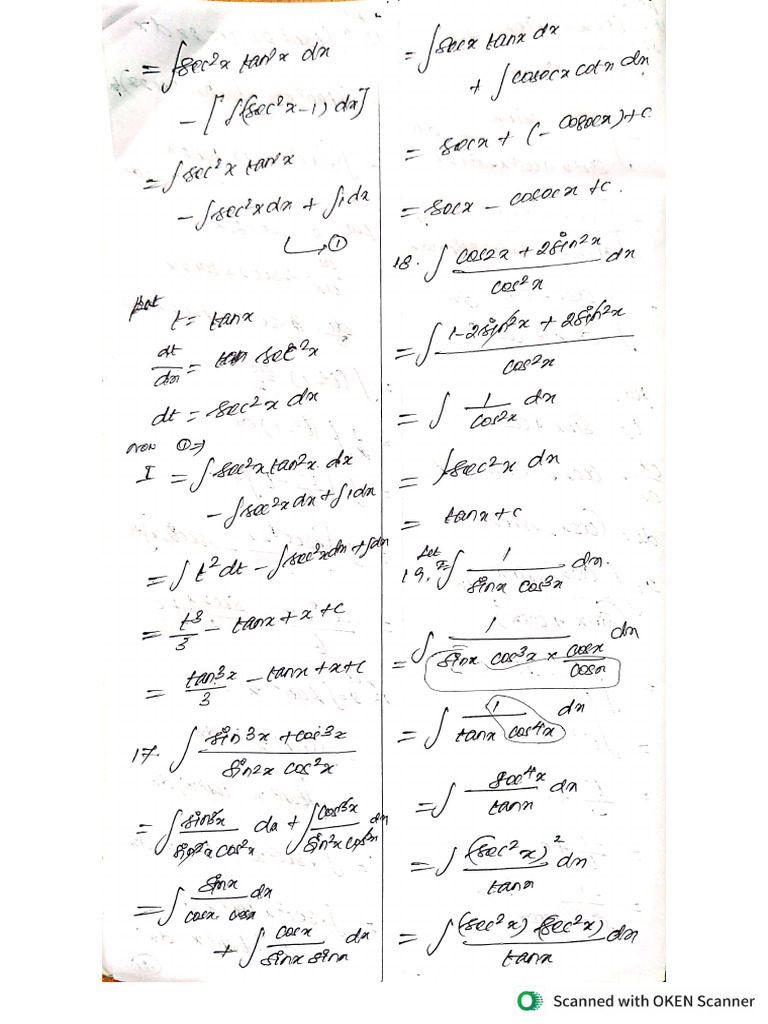 = ∫sec²x tan²x dx
- [∫(sec²x-1) dx]
= ∫sec²x tan²x
- ∫sec²x dx + ∫1dx
↳ ①
put
t = tanx
dt/dx = sec²x
dt = sec²x dx
now ①⇒
I = ∫sec²x tan²x dx
- ∫sec²x dx + ∫1dx
= ∫t²dt - ∫sec²xdx + ∫dx
= t³/3 - tanx + x + c
= tan³x/3 - tanx + x + c
17. ∫ sin³x + cos³x / sin²x cos²x
= ∫ sin³x / sin²x cos²x dx + ∫ cos³x / sin²x cos²x dx
= ∫ sinx / cosx. cosx dx
+ ∫ cosx / sinx sinx dx
= ∫secx tanx dx
+ ∫cosecx cotx dx
= secx + (-cosecx) + c
= secx - cosecx + c.
18. ∫ cos2x + 2sin²x / cos²x dx
= ∫ 1-2sin²x + 2sin²x / cos²x
= ∫ 1/cos²x dx
= ∫sec²x dx
= tanx + c
Let
19. I = ∫ 1 / sinx cos³x dx.
= ∫ 1 / sinx cos³x × cosx/cosx dx
= ∫ 1 / tanx cos⁴x dx
= ∫ sec⁴x / tanx dx
= ∫ (sec²x)² / tanx dx
= ∫ (sec²x) (sec²x) / tanx dx
Scanned with OKEN Scanner